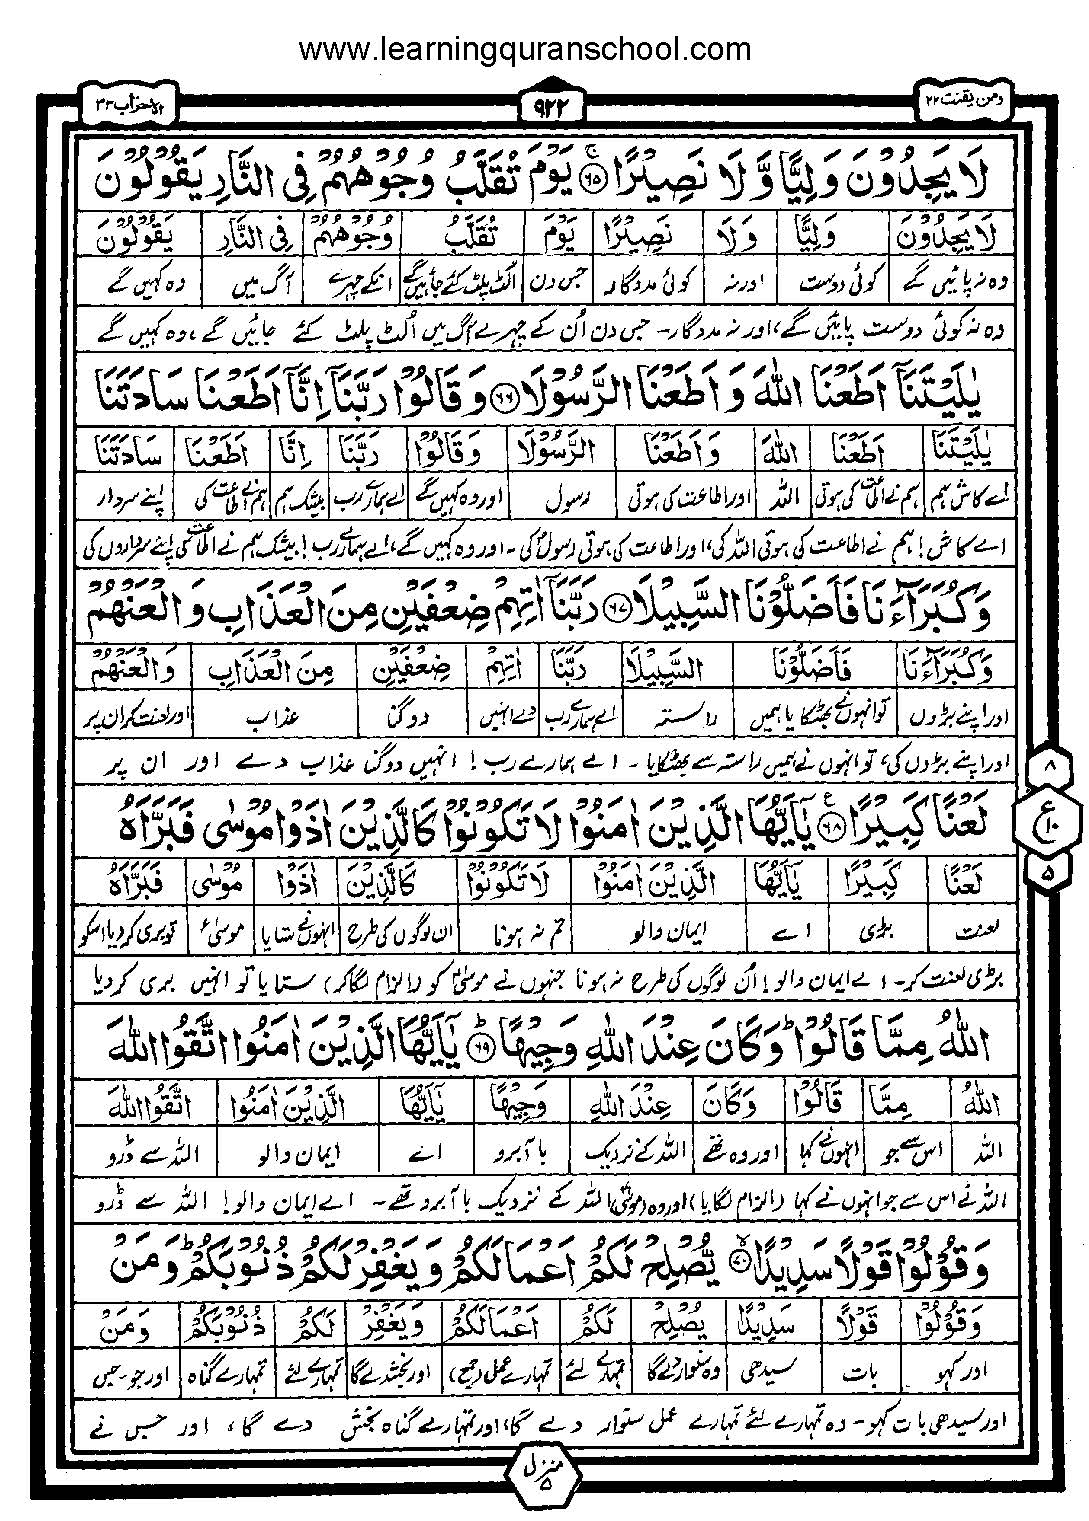 www.learningquranschool.com
ومن یقنت ۲۲
۹۲۲
الاحزاب ۳۳
لَا يَجِدُوْنَ وَلِيًّا وَّلَا نَصِيْرًا ۶۵ يَوْمَ تُقَلَّبُ وُجُوْهُهُمْ فِى النَّارِ يَقُوْلُوْنَ
لَا يَجِدُوْنَ وَلِيًّا وَلَا نَصِيْرًا يَوْمَ تُقَلَّبُ وُجُوْهُهُمْ فِى النَّارِ يَقُوْلُوْنَ
وہ نہ پائیں گے کوئی دوست اور نہ کوئی مددگار جس دن الٹ پلٹ کئے جائیں گے انکے چہرے آگ میں وہ کہیں گے
وہ نہ کوئی دوست پائیں گے، اور نہ مددگار۔ جس دن اُن کے چہرے آگ میں اُلٹ پلٹ کئے جائیں گے، وہ کہیں گے
يٰلَيْتَنَآ اَطَعْنَا اللّٰهَ وَاَطَعْنَا الرَّسُوْلَا ۶۶ وَقَالُوْا رَبَّنَآ اِنَّآ اَطَعْنَا سَادَتَنَا
يٰلَيْتَنَا اَطَعْنَا اللّٰهَ وَاَطَعْنَا الرَّسُوْلَا وَقَالُوْا رَبَّنَا اِنَّا اَطَعْنَا سَادَتَنَا
اے کاش ہم ہم نے اطاعت کی ہوتی اللہ اور اطاعت کی ہوتی رسول اور وہ کہیں گے اے ہمارے رب بیشک ہم ہم نے اطاعت کی اپنے سردار
اے کاش! ہم نے اطاعت کی ہوتی اللہ کی، اور اطاعت کی ہوتی رسول کی۔ اور وہ کہیں گے، اے ہمارے رب! بیشک ہم نے اطاعت کی اپنے سرداروں کی
وَكُبَرَآءَنَا فَاَضَلُّوْنَا السَّبِيْلَا ۶۷ رَبَّنَآ اٰتِهِمْ ضِعْفَيْنِ مِنَ الْعَذَابِ وَالْعَنْهُمْ
وَكُبَرَآءَنَا فَاَضَلُّوْنَا السَّبِيْلَا رَبَّنَا اٰتِهِمْ ضِعْفَيْنِ مِنَ الْعَذَابِ وَالْعَنْهُمْ
اور اپنے بڑوں تو انہوں نے بھٹکایا ہمیں راستہ اے ہمارے رب دے انہیں دوگنا عذاب اور لعنت کر ان پر
اور اپنے بڑوں کی، تو انہوں نے ہمیں راستہ سے بھٹکایا۔ اے ہمارے رب! انہیں دوگنا عذاب دے اور ان پر
لَعْنًا كَبِيْرًا ۶۸ يٰٓاَيُّهَا الَّذِيْنَ اٰمَنُوْا لَا تَكُوْنُوْا كَالَّذِيْنَ اٰذَوْا مُوْسٰى فَبَرَّاَهُ
لَعْنًا كَبِيْرًا يٰٓاَيُّهَا الَّذِيْنَ اٰمَنُوْا لَا تَكُوْنُوْا كَالَّذِيْنَ اٰذَوْا مُوْسٰى فَبَرَّاَهُ
لعنت بڑی اے ایمان والو تم نہ ہونا ان لوگوں کی طرح انہوں نے ستایا موسیٰؑ تو بری کردیا اسکو
بڑی لعنت کر۔ اے ایمان والو! اُن لوگوں کی طرح نہ ہونا جنہوں نے موسیٰؑ کو (الزام لگاکر) ستایا تو انہیں بری کر دیا
اللّٰهُ مِمَّا قَالُوْا ۭ وَكَانَ عِنْدَ اللّٰهِ وَجِيْهًا ۶۹ يٰٓاَيُّهَا الَّذِيْنَ اٰمَنُوا اتَّقُوا اللّٰهَ
اللّٰهُ مِمَّا قَالُوْا وَكَانَ عِنْدَ اللّٰهِ وَجِيْهًا يٰٓاَيُّهَا الَّذِيْنَ اٰمَنُوا اتَّقُوا اللّٰهَ
اللہ اس سے جو انہوں نے کہا اور وہ تھے اللہ کے نزدیک باآبرو اے ایمان والو اللہ سے ڈرو
اللہ نے اس سے جو انہوں نے کہا (الزام لگایا) اور وہ (موسیٰؑ) اللہ کے نزدیک باآبرو تھے۔ اے ایمان والو! اللہ سے ڈرو
وَقُوْلُوْا قَوْلًا سَدِيْدًا ۷۰ يُّصْلِحْ لَكُمْ اَعْمَالَكُمْ وَيَغْفِرْ لَكُمْ ذُنُوْبَكُمْ ۭ وَمَنْ
وَقُوْلُوْا قَوْلًا سَدِيْدًا يُصْلِحْ لَكُمْ اَعْمَالَكُمْ وَيَغْفِرْ لَكُمْ ذُنُوْبَكُمْ وَمَنْ
اور کہو بات سیدھی وہ سنوار دے گا تمہارے لئے تمہارے عمل (جمع) اور بخش دے گا تمہارے لئے تمہارے گناہ اور جو۔جس
اور سیدھی بات کہو۔ وہ تمہارے لئے تمہارے عمل سنوار دے گا، اور تمہارے گناہ بخش دے گا، اور جس نے
۸
ع
۱۰
۵
منزل
۵